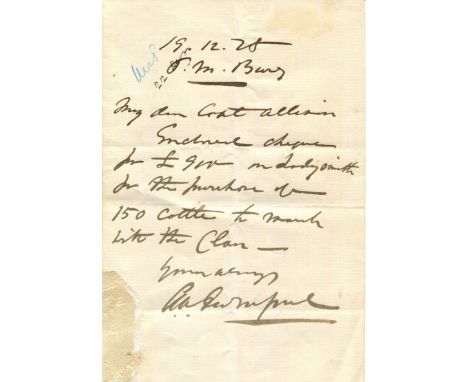 19.12.28
P. M. Burg
My dear Coat Allison
Enclosed cheque
for £900 on Ladysmith
for the purchase of
150 cattle to march
with the Clan —
Yours always